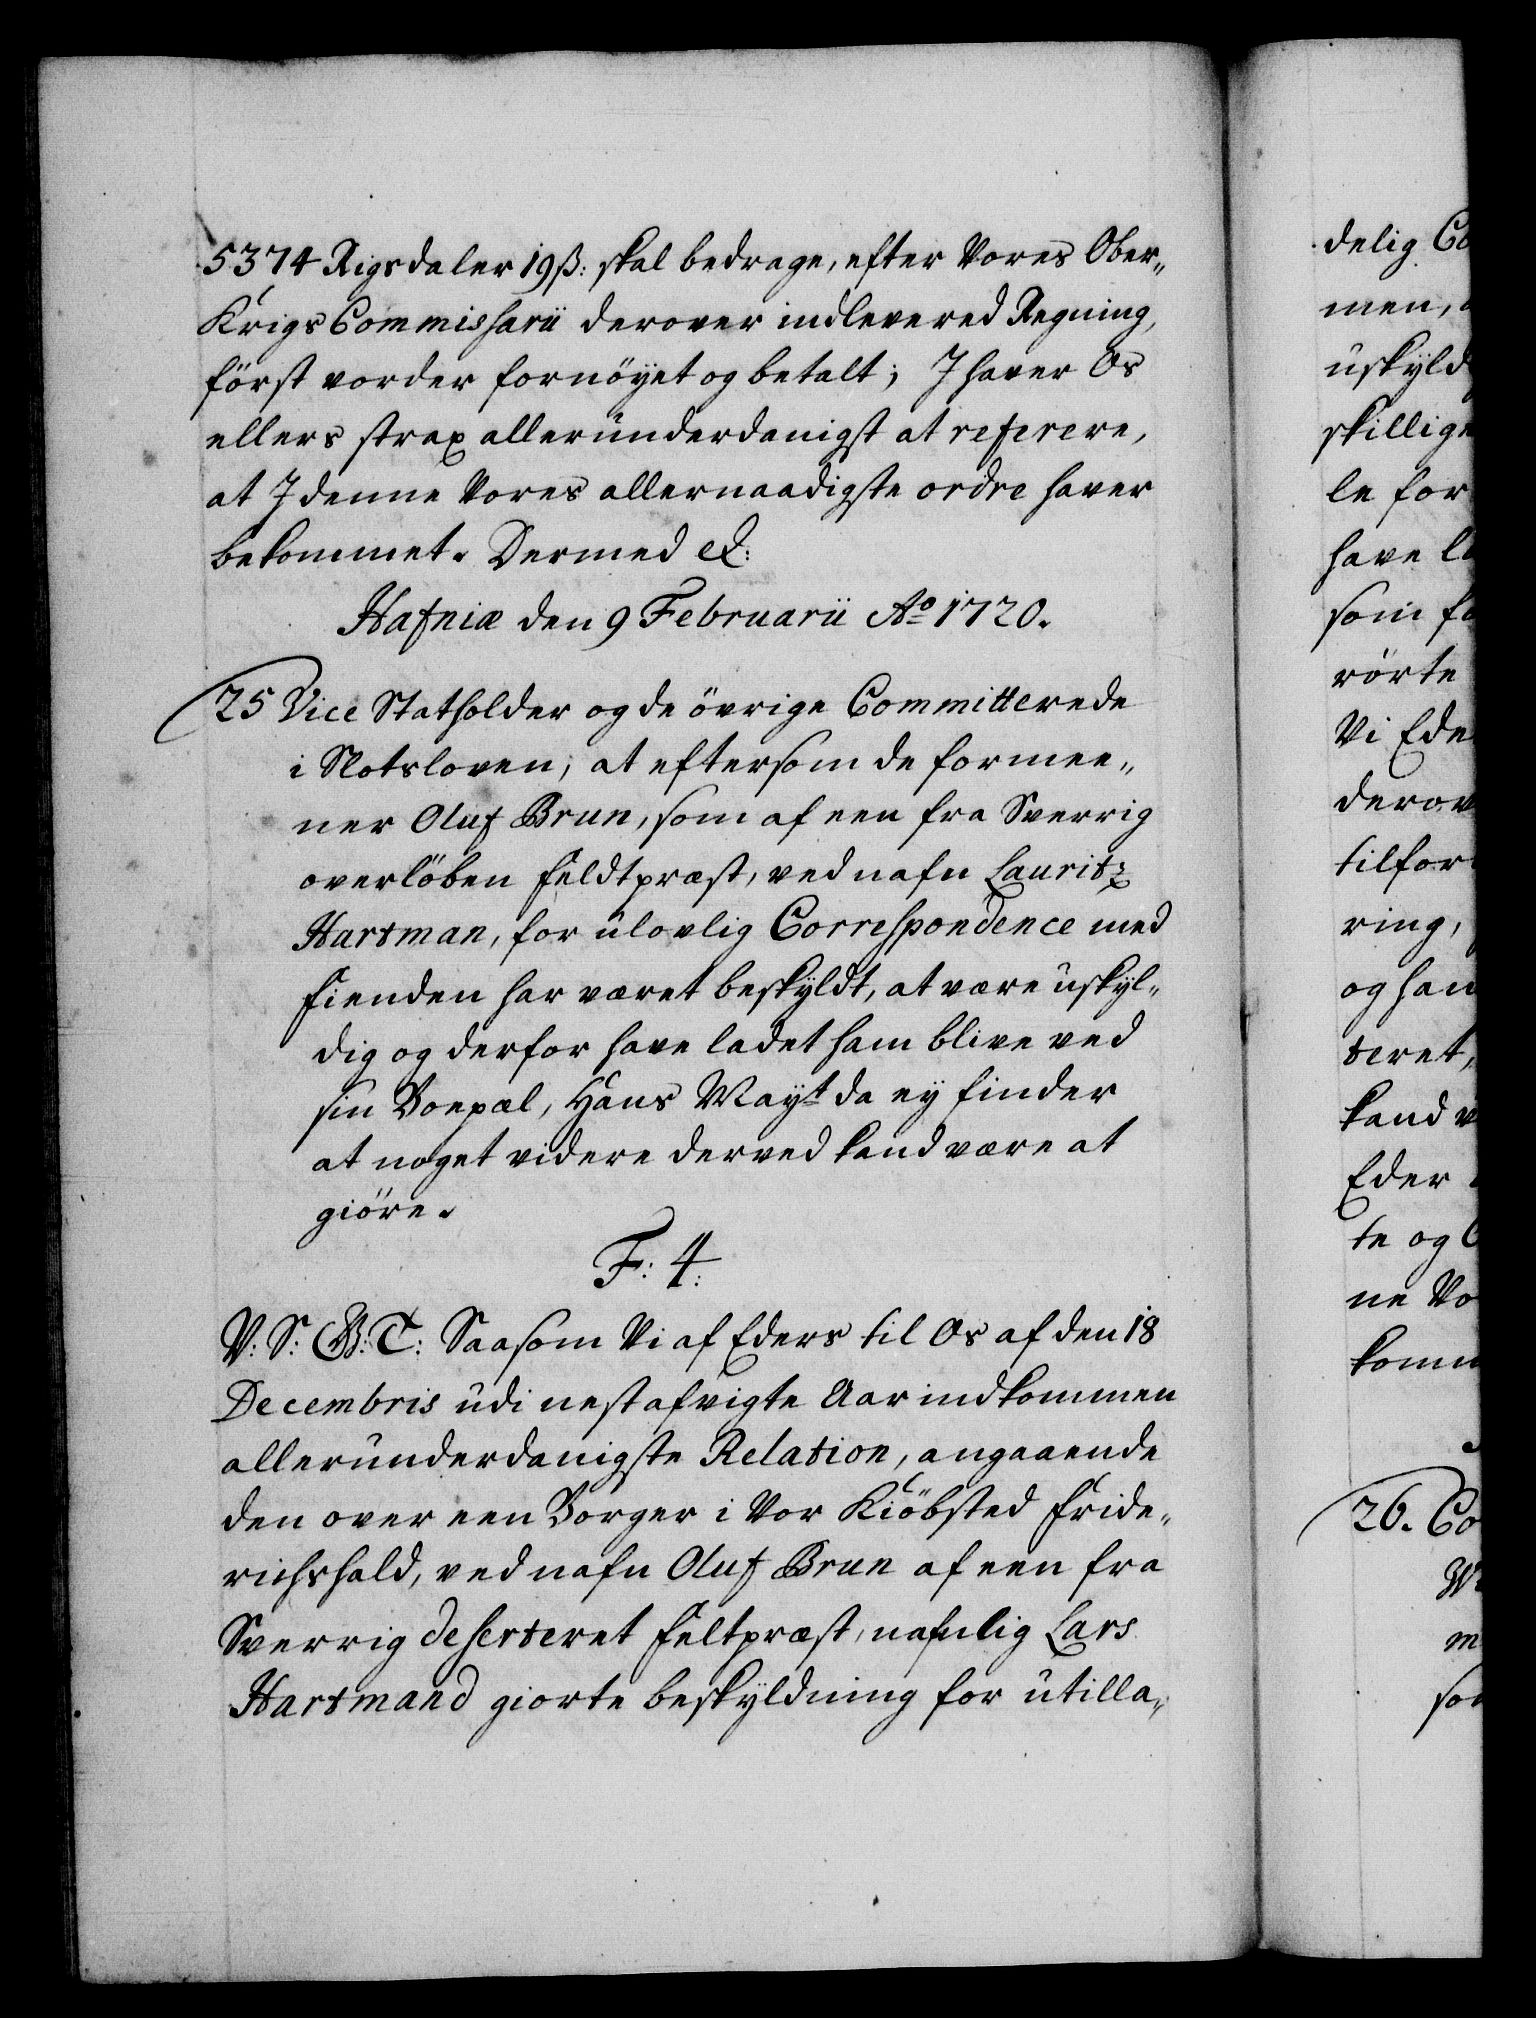 5374 Rigsdaler 19 ß: skal bedrage, efter Vores Ober„
Krigs Commissarii derover indlevered Regning,
först vorder fornöyet og betalt; I haver Os
ellers strax allerunderdanigst at referere,
at I denne Vores allernaadigste ordre haver
bekommet. Dermed etc:
Hafniæ den 9 Februarii Ao 1720.
25 Vice Statholder og de övrige Committerede
i Slotsloven; at eftersom de formee„
ner Oluf Brun, som af een fra Sverrig
overlöben Feldtpræst, ved nafn Lauritz
Hartman, for ulovlig Correspondence med
Fienden har været beskyldt, at være uskyl„
dig og derfor have ladet ham blive ved
sin Boepæl, Hans Mayt da ey finder
at noget videre derved kand være at
giöre.
F: 4:
V: S: G: T: Saasom Vi af Eders til Os af den 18
Decembris udi nestafvigte Aar indkommen
allerunderdanigste Relation, angaaende
den over een Borger i Vor Kiöbsted Fride„
richshald, ved nafn Oluf Brun af een fra
Sverrig deserteret Feltpræst, nafnlig Lars
Hartmand giorte beskyldning for utilla„
delig Co
men,
uskyld
skillige
le for
have l
som fo
rörte
Vi Ede
derov
tilfor
ring,
og han
teret,
kand v
Eder
te og
ne Vo
komm
26. Co
m
som